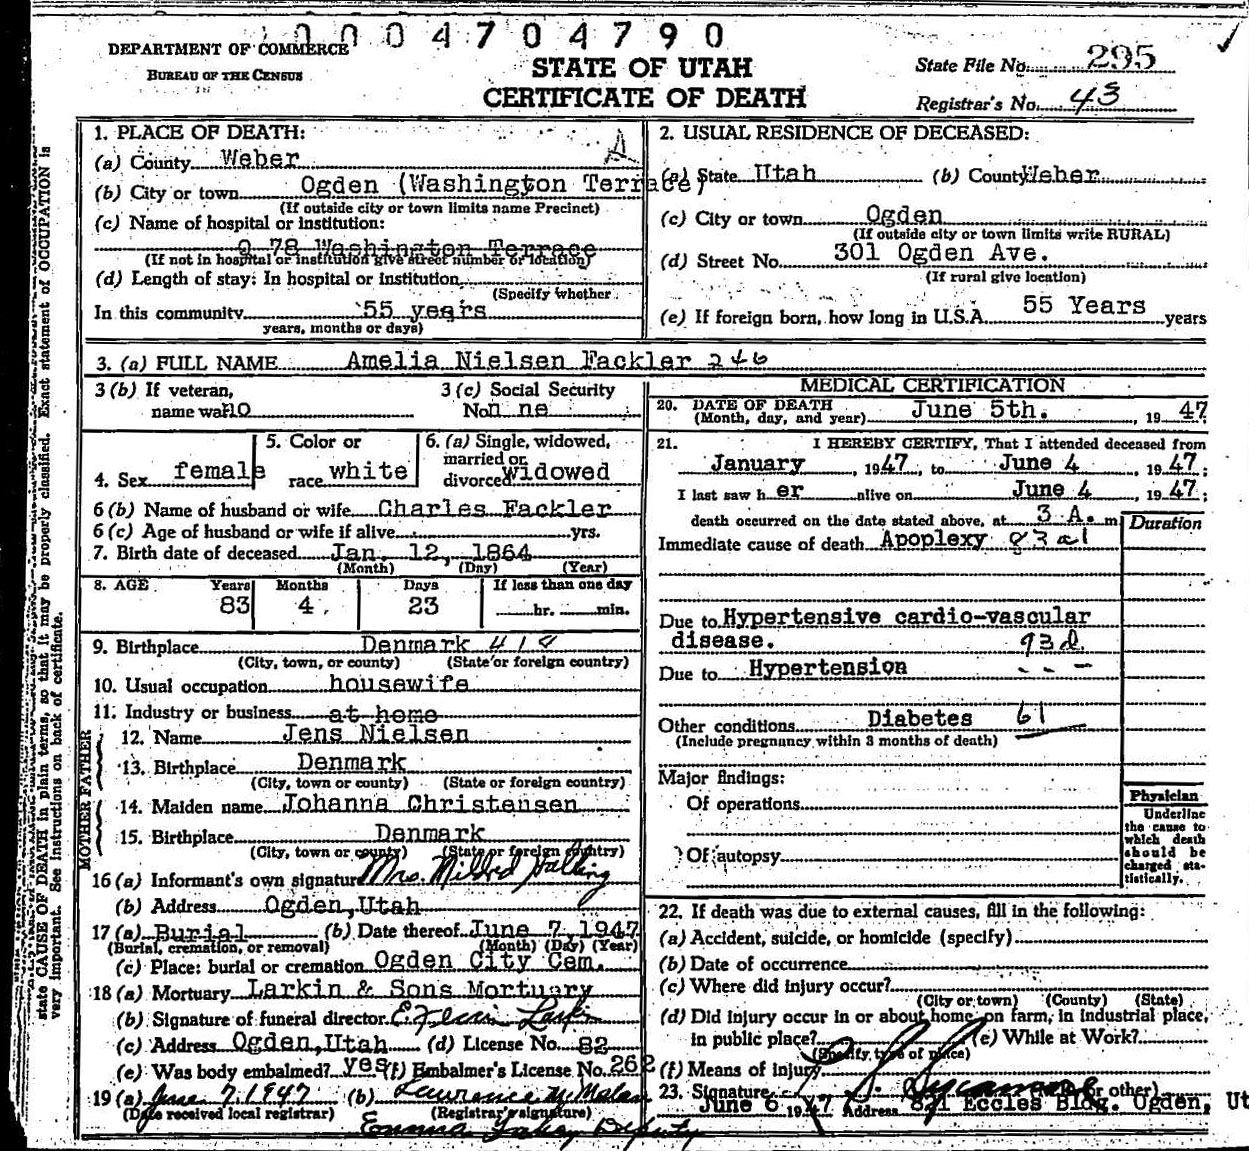 0004704790
DEPARTMENT OF COMMERCE
BUREAU OF THE CENSUS
STATE OF UTAH
CERTIFICATE OF DEATH
State File No. 295
Registrar's No. 43
1. PLACE OF DEATH:
A
(a) County Weber
(b) City or town Ogden (Washington Terrace)
(If outside city or town limits name Precinct)
(c) Name of hospital or institution:
Q 78 Washington Terrace
(If not in hospital or institution give street number or location)
(d) Length of stay: In hospital or institution
(Specify whether
In this community 55 years
years, months or days)
2. USUAL RESIDENCE OF DECEASED:
(a) State Utah (b) County Weber
(c) City or town Ogden
(If outside city or town limits write RURAL)
(d) Street No. 301 Ogden Ave.
(If rural give location)
(e) If foreign born, how long in U.S.A. 55 Years years
3. (a) FULL NAME Amelia Nielsen Fackler 246
3 (b) If veteran, name war no
3 (c) Social Security No. n ne
4. Sex female
5. Color or race white
6. (a) Single, widowed, married or divorced widowed
6 (b) Name of husband or wife Charles Fackler
6 (c) Age of husband or wife if alive yrs.
7. Birth date of deceased Jan. 12, 1864
(Month) (Day) (Year)
8. AGE Years Months Days If less than one day
83 4 23 hr. min.
9. Birthplace Denmark
(City, town, or county) (State or foreign country)
10. Usual occupation housewife
11. Industry or business at home
FATHER
12. Name Jens Nielsen
13. Birthplace Denmark
(City, town or county) (State or foreign country)
MOTHER
14. Maiden name Johanna Christensen
15. Birthplace Denmark
(City, town or county) (State or foreign country)
16 (a) Informant's own signature Mrs. Mildred
(b) Address Ogden, Utah
17 (a) Burial (b) Date thereof June 7, 1947
(Burial, cremation, or removal) (Month) (Day) (Year)
(c) Place: burial or cremation Ogden City Cem.
18 (a) Mortuary Larkin & Sons Mortuary
(b) Signature of funeral director Larkin
(c) Address Ogden, Utah (d) License No. 82
(e) Was body embalmed? yes (f) Embalmer's License No. 262
19 (a) June 7 1947 (b) Lawrence
(Date received local registrar) (Registrar's signature)
Emma Deputy
MEDICAL CERTIFICATION
20. DATE OF DEATH June 5th. 1947
(Month, day, and year)
21. I HEREBY CERTIFY, That I attended deceased from
January, 1947, to June 4, 1947;
I last saw her alive on June 4, 1947;
death occurred on the date stated above, at 3 A. m
Duration
Immediate cause of death Apoplexy 83a1
Due to Hypertensive cardio-vascular
disease. 93d
Due to Hypertension ---
Other conditions Diabetes 61
(Include pregnancy within 3 months of death)
Major findings:
Of operations
Of autopsy
Physician
Underline
the cause to
which death
should be
charged sta-
tistically.
22. If death was due to external causes, fill in the following:
(a) Accident, suicide, or homicide (specify)
(b) Date of occurrence
(c) Where did injury occur?
(City or town) (County) (State)
(d) Did injury occur in or about home, on farm, in industrial place,
in public place? (e) While at Work?
(Specify type of place)
(f) Means of injury
23. Signature or other)
June 6 1947 Address 821 Eccles Bldg. Ogden, Ut
state CAUSE OF DEATH in plain terms, so that it may be properly classified. Exact statement of OCCUPATION is
very important. See instructions on back of certificate.